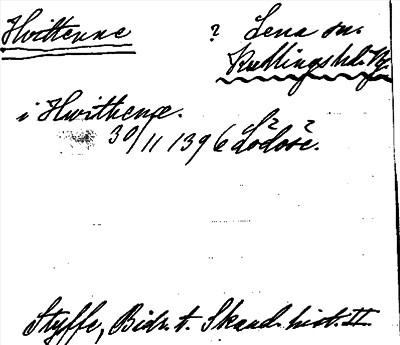 Hvittenne ? Lena sn.
Kullings hd. Vg.
i Hwithene.
30/11 1396 Lödöse.
Styffe, Bidr. t. Skand. hist. II